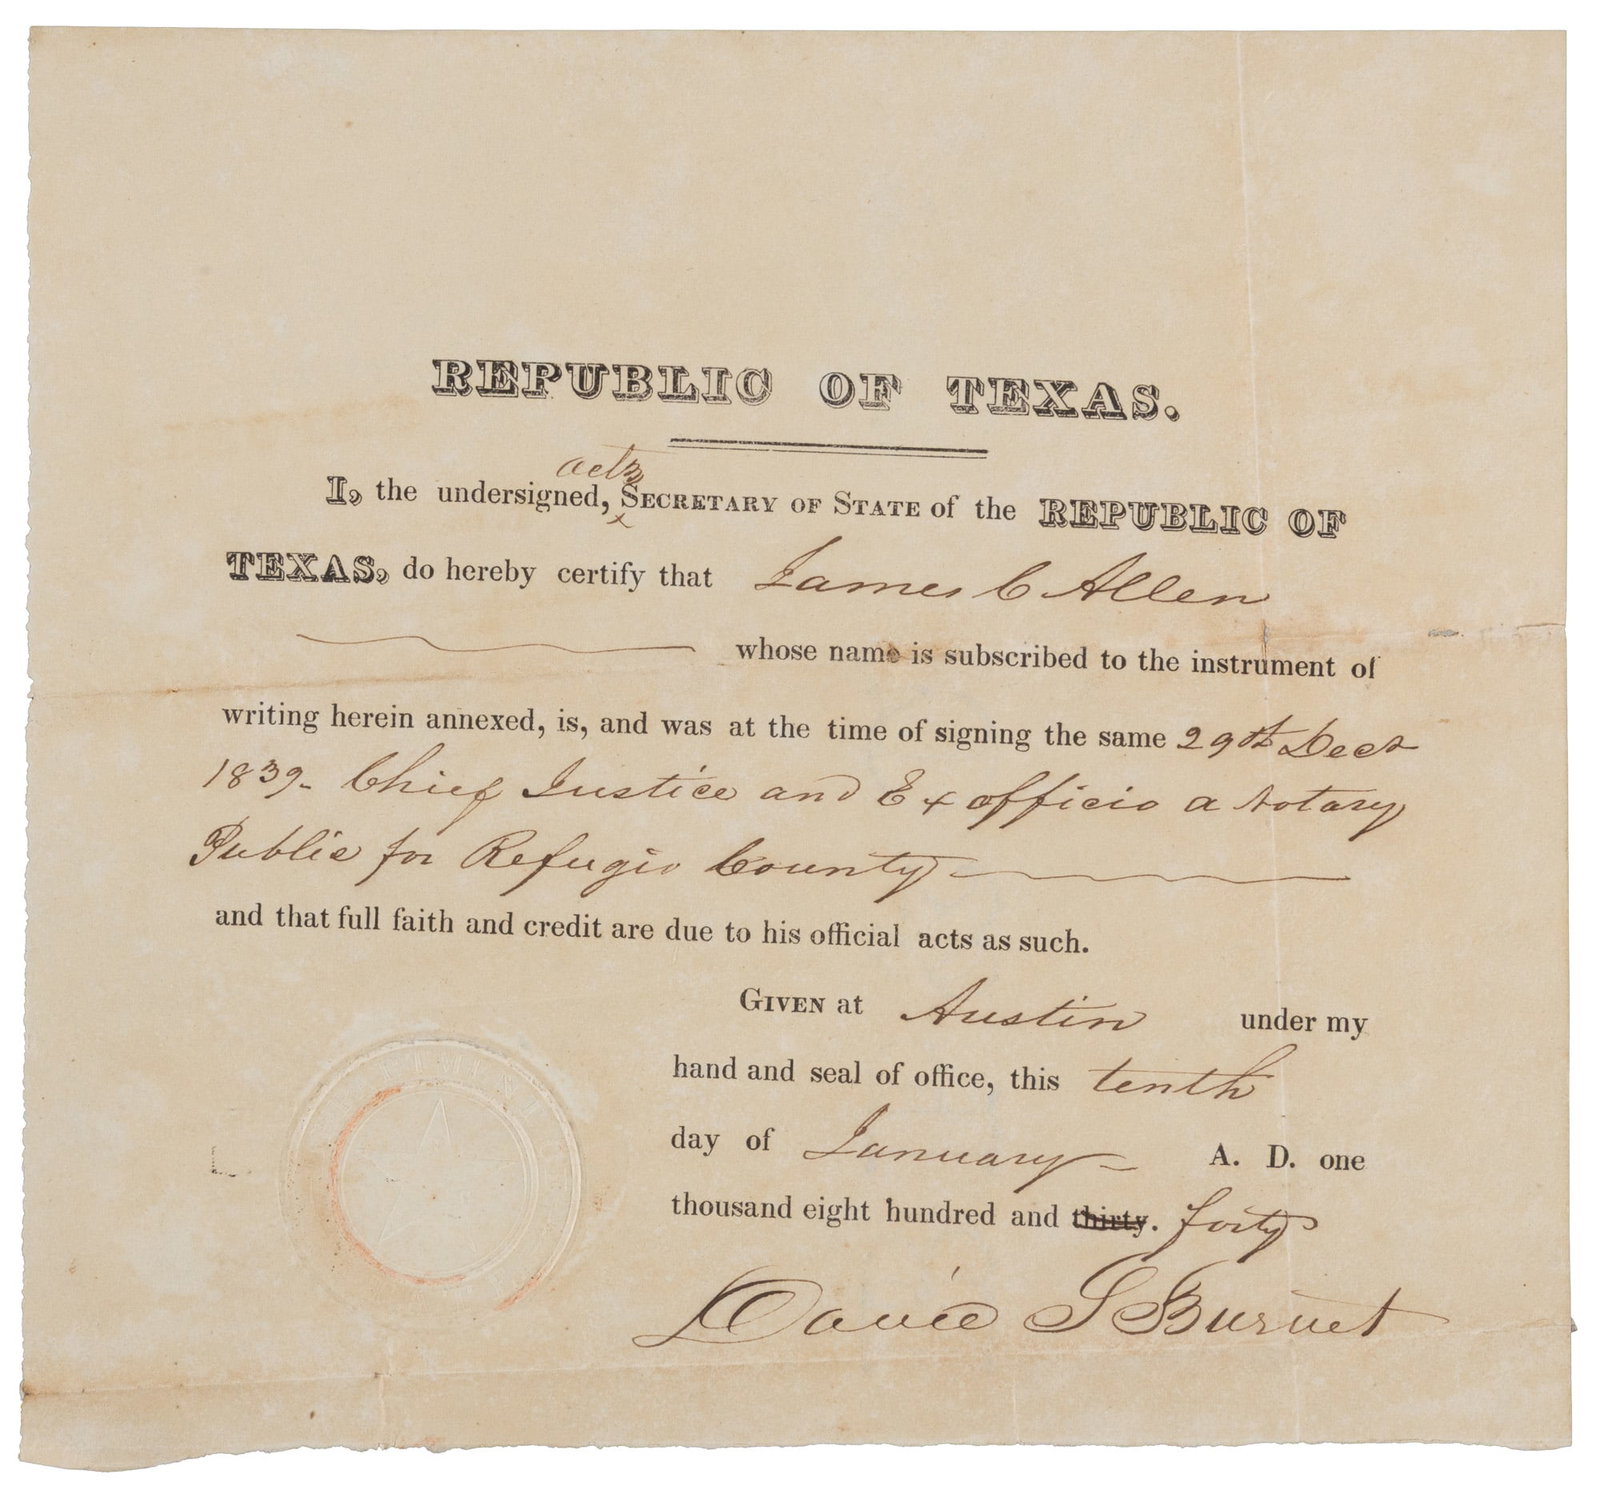 REPUBLIC OF TEXAS.
actg
I, the undersigned, SECRETARY OF STATE of the REPUBLIC OF
TEXAS, do hereby certify that James C Allen
whose name is subscribed to the instrument of
writing herein annexed, is, and was at the time of signing the same 29th Decr
1839- Chief Justice and Ex officio a Notary
Public for Refugio County
and that full faith and credit are due to his official acts as such.
GIVEN at Austin under my
hand and seal of office, this tenth
day of January A. D. one
thousand eight hundred and thirty. forty
David G Burnet